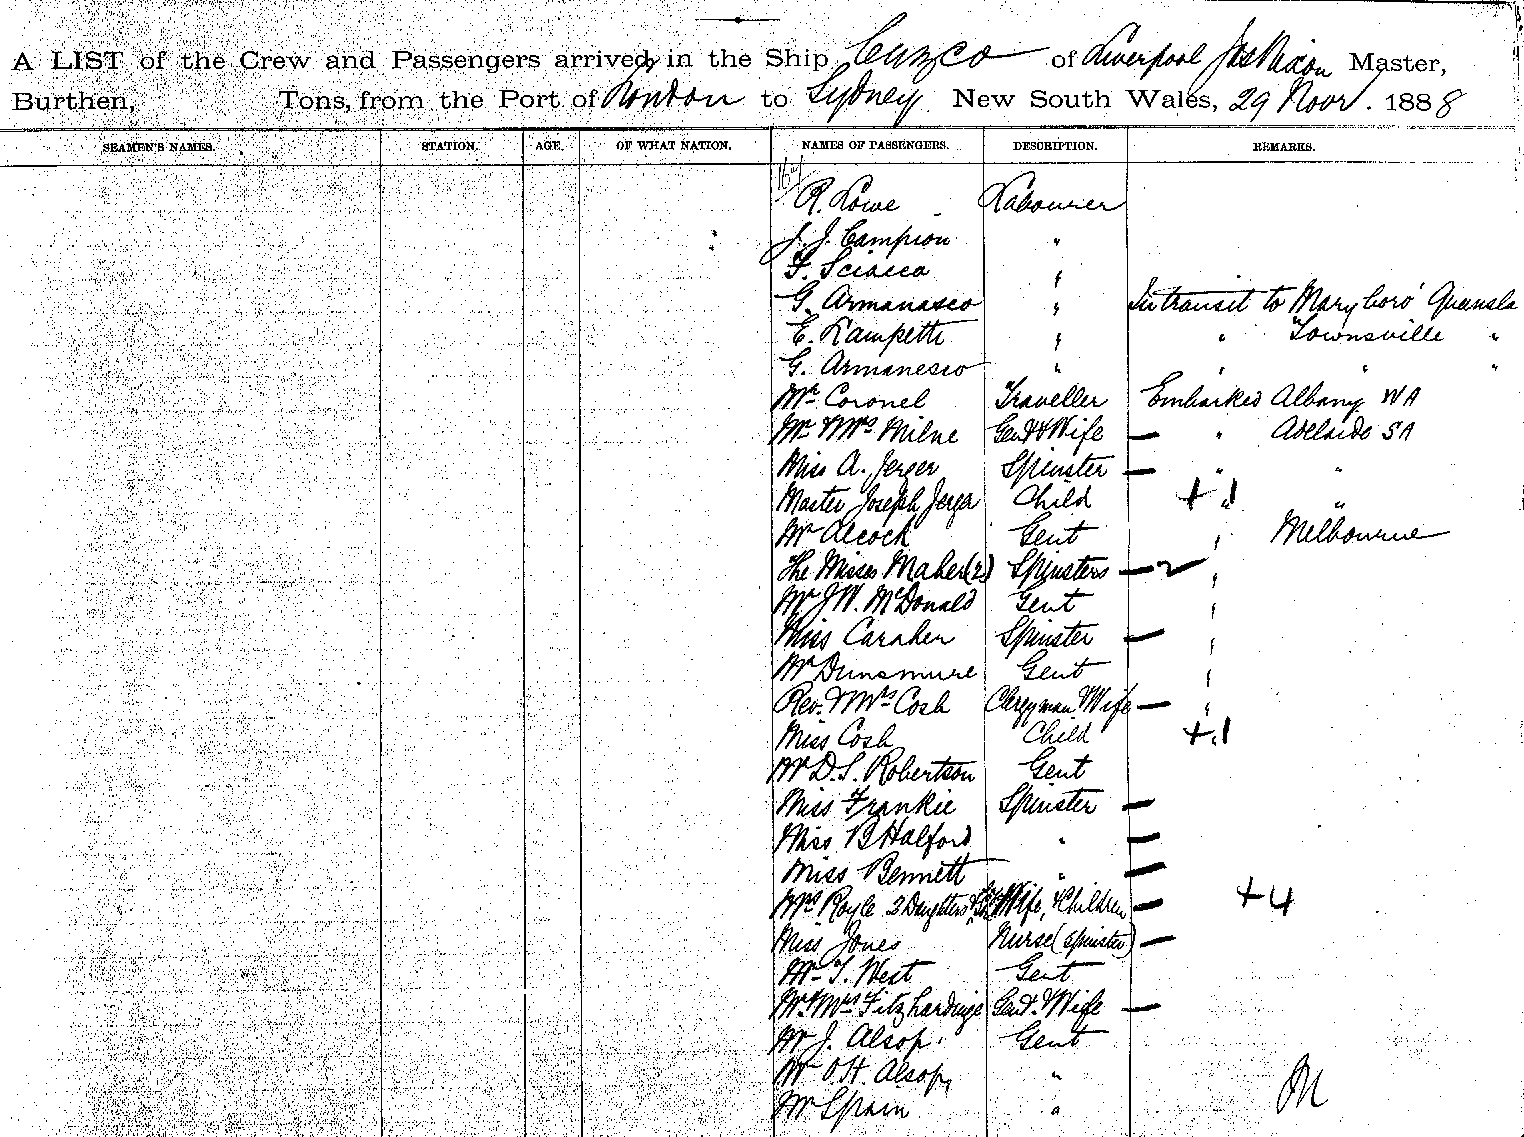 A LIST of the Crew and Passengers arrived in the Ship Cuzco of Liverpool Jos Nixon Master,
Burthen, Tons, from the Port of London to Sydney New South Wales, 29 Novr. 1888
SEAMEN'S NAMES. STATION. AGE. OF WHAT NATION. NAMES OF PASSENGERS. DESCRIPTION. REMARKS.
R. Lowe Labourer
J. J. Campion "
F. Sciacca "
G. Armanasco " In transit to Maryboro' Queensla
E. Lampetti " " Townsville "
G. Armanesco " " " "
Mr Coronel Traveller Embarked Albany WA
Mr & Mrs Milne Gent & Wife — " Adelaide SA
Miss A. Jerger Spinster — " "
Master Joseph Jerger Child +1 " "
Mr Alcock Gent " Melbourne
The Misses Maher (2) Spinsters — 2 "
Mr J W. McDonald Gent "
Miss Caraher Spinster — "
Mr Dunsmure Gent "
Rev. & Mrs Cosh Clergyman & Wife — "
Miss Cosh Child +1
Mr D. S. Robertson Gent
Miss Frankie Spinster —
Miss B Halford " —
Miss Bennett " —
Mrs Royle 3 Daughters & Wife, & Children — +4
Miss Jones Nurse (Spinster) —
Mr T. West Gent
Mr & Mrs Fitzhardinge Gent. & Wife —
Mr J. Alsop Gent
Mr O. H. Alsop "
Mr Spain "
M